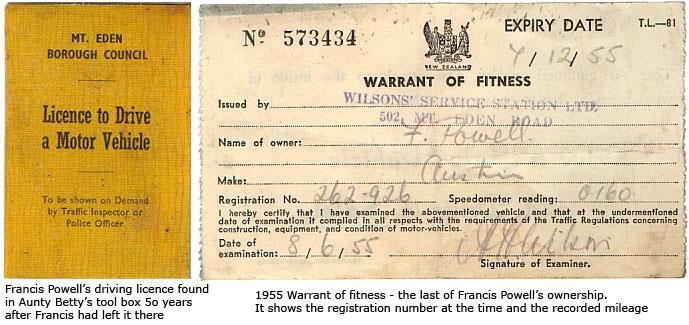 MT. EDEN
BOROUGH COUNCIL
Licence to Drive
a Motor Vehicle
To be shown on Demand
by Traffic Inspector or
Police Officer
Nº 573434
NEW ZEALAND
EXPIRY DATE
T.L.—81
7/12/55
WARRANT OF FITNESS
Issued by WILSONS' SERVICE STATION LTD.
502 MT. EDEN ROAD
Name of owner: F. Powell.
Make: Austin
Registration No. 262-926 Speedometer reading: 0160
I hereby certify that I have examined the abovementioned vehicle and that at the undermentioned
date of examination it complied in all respects with the requirements of the Traffic Regulations concerning
construction, equipment, and condition of motor-vehicles.
Date of
examination: 8/6/55
Signature of Examiner.
Francis Powell's driving licence found
in Aunty Betty's tool box 50 years
after Francis had left it there
1955 Warrant of fitness - the last of Francis Powell's ownership.
It shows the registration number at the time and the recorded mileage